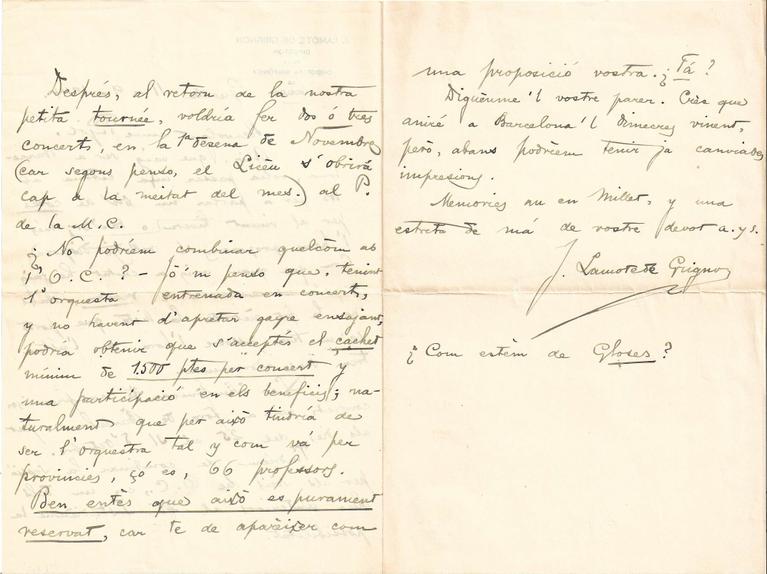 Després, al retorn de la nostra
petita tournée, voldría fer dos ó tres
concerts, en la 1ª desena de Novembre
(car segons penso, el Licèu s'obrirá
cap a la meitat del mes.) al P.
de la M.C.
¿No podríem combinar quelcòm ab
l'O.C.? - Jo'm penso que, tenint
l'orquesta entrenada en concerts,
y no havent d'apretar gayre ensajant,
podría obtenir que s'acceptés el cachet
mínim de 1.500 ptes per concert y
una participació en els beneficis; na-
turalment que per aixó tindría de
ser l'orquestra tal y com vá per
provincies, çó es, 66 professors.
Ben entès que aixó es purament
reservat, car te de aparèixer com
una proposició vostra. ¿Tá?
Diguèume'l vostre parer. Crèc que
aniré a Barcelona'l dimecres vinent,
però, abans podríem tenir ja canviades
impresions.
Memories au en Millet, y una
estreta de má de vostre devot a. y s.
J. Lamote de Grignon
¿Com estèm de Gloses?